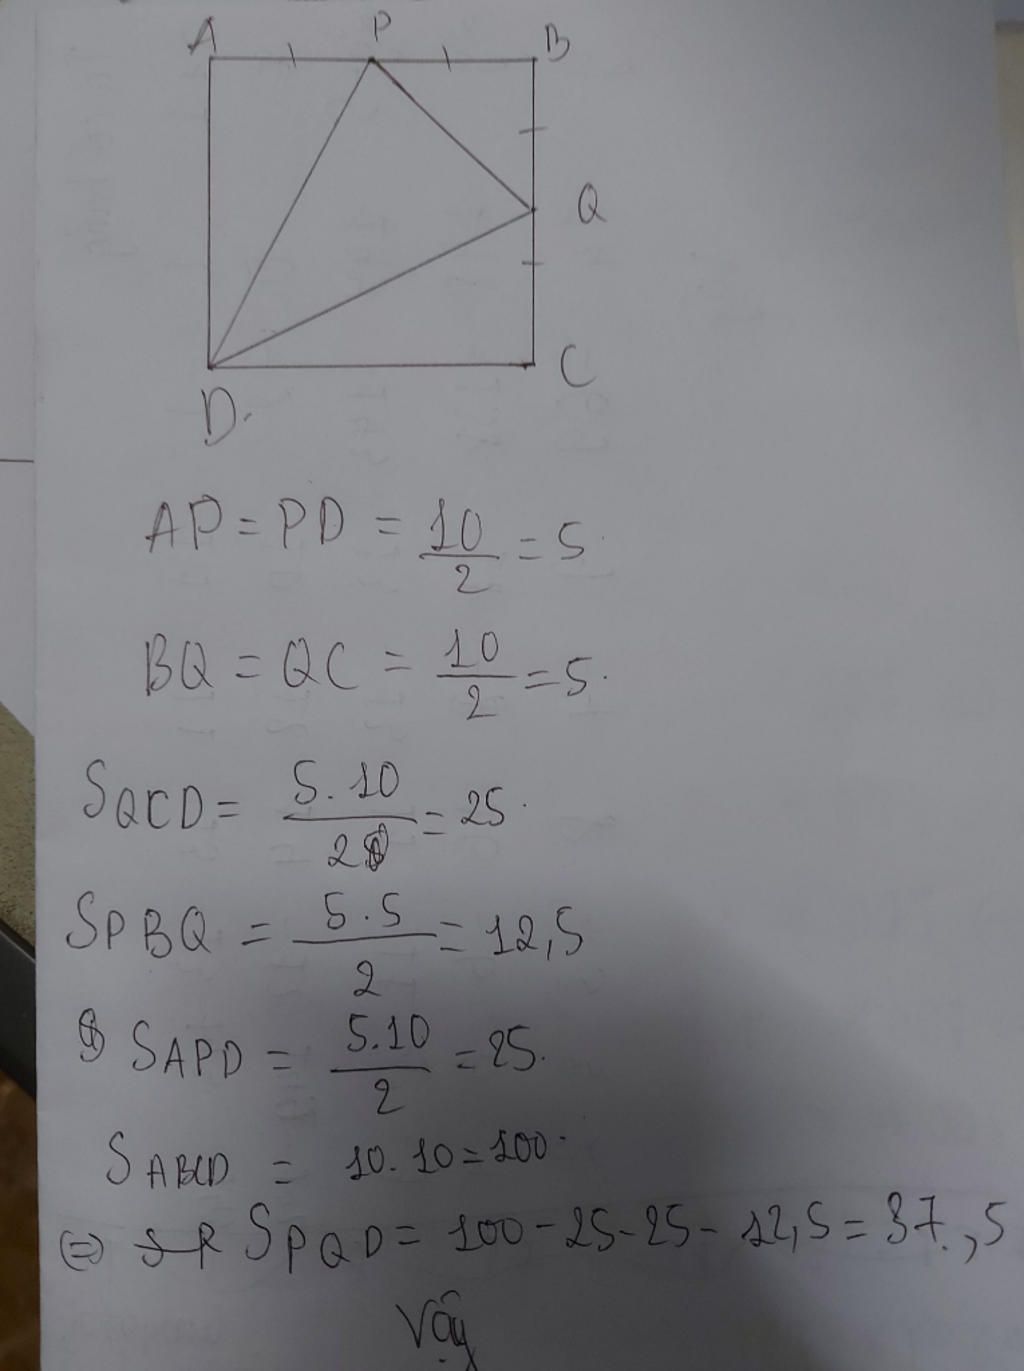 A P B
Q
D. C
AP = PD = 10/2 = 5.
BQ = QC = 10/2 = 5.
SQCD = 5.10/2 = 25.
SPBQ = 5.5/2 = 12,5
SAPD = 5.10/2 = 25.
SABCD = 10.10 = 100.
(=) SPQD = 100 - 25 - 25 - 12,5 = 37,5
Vậy